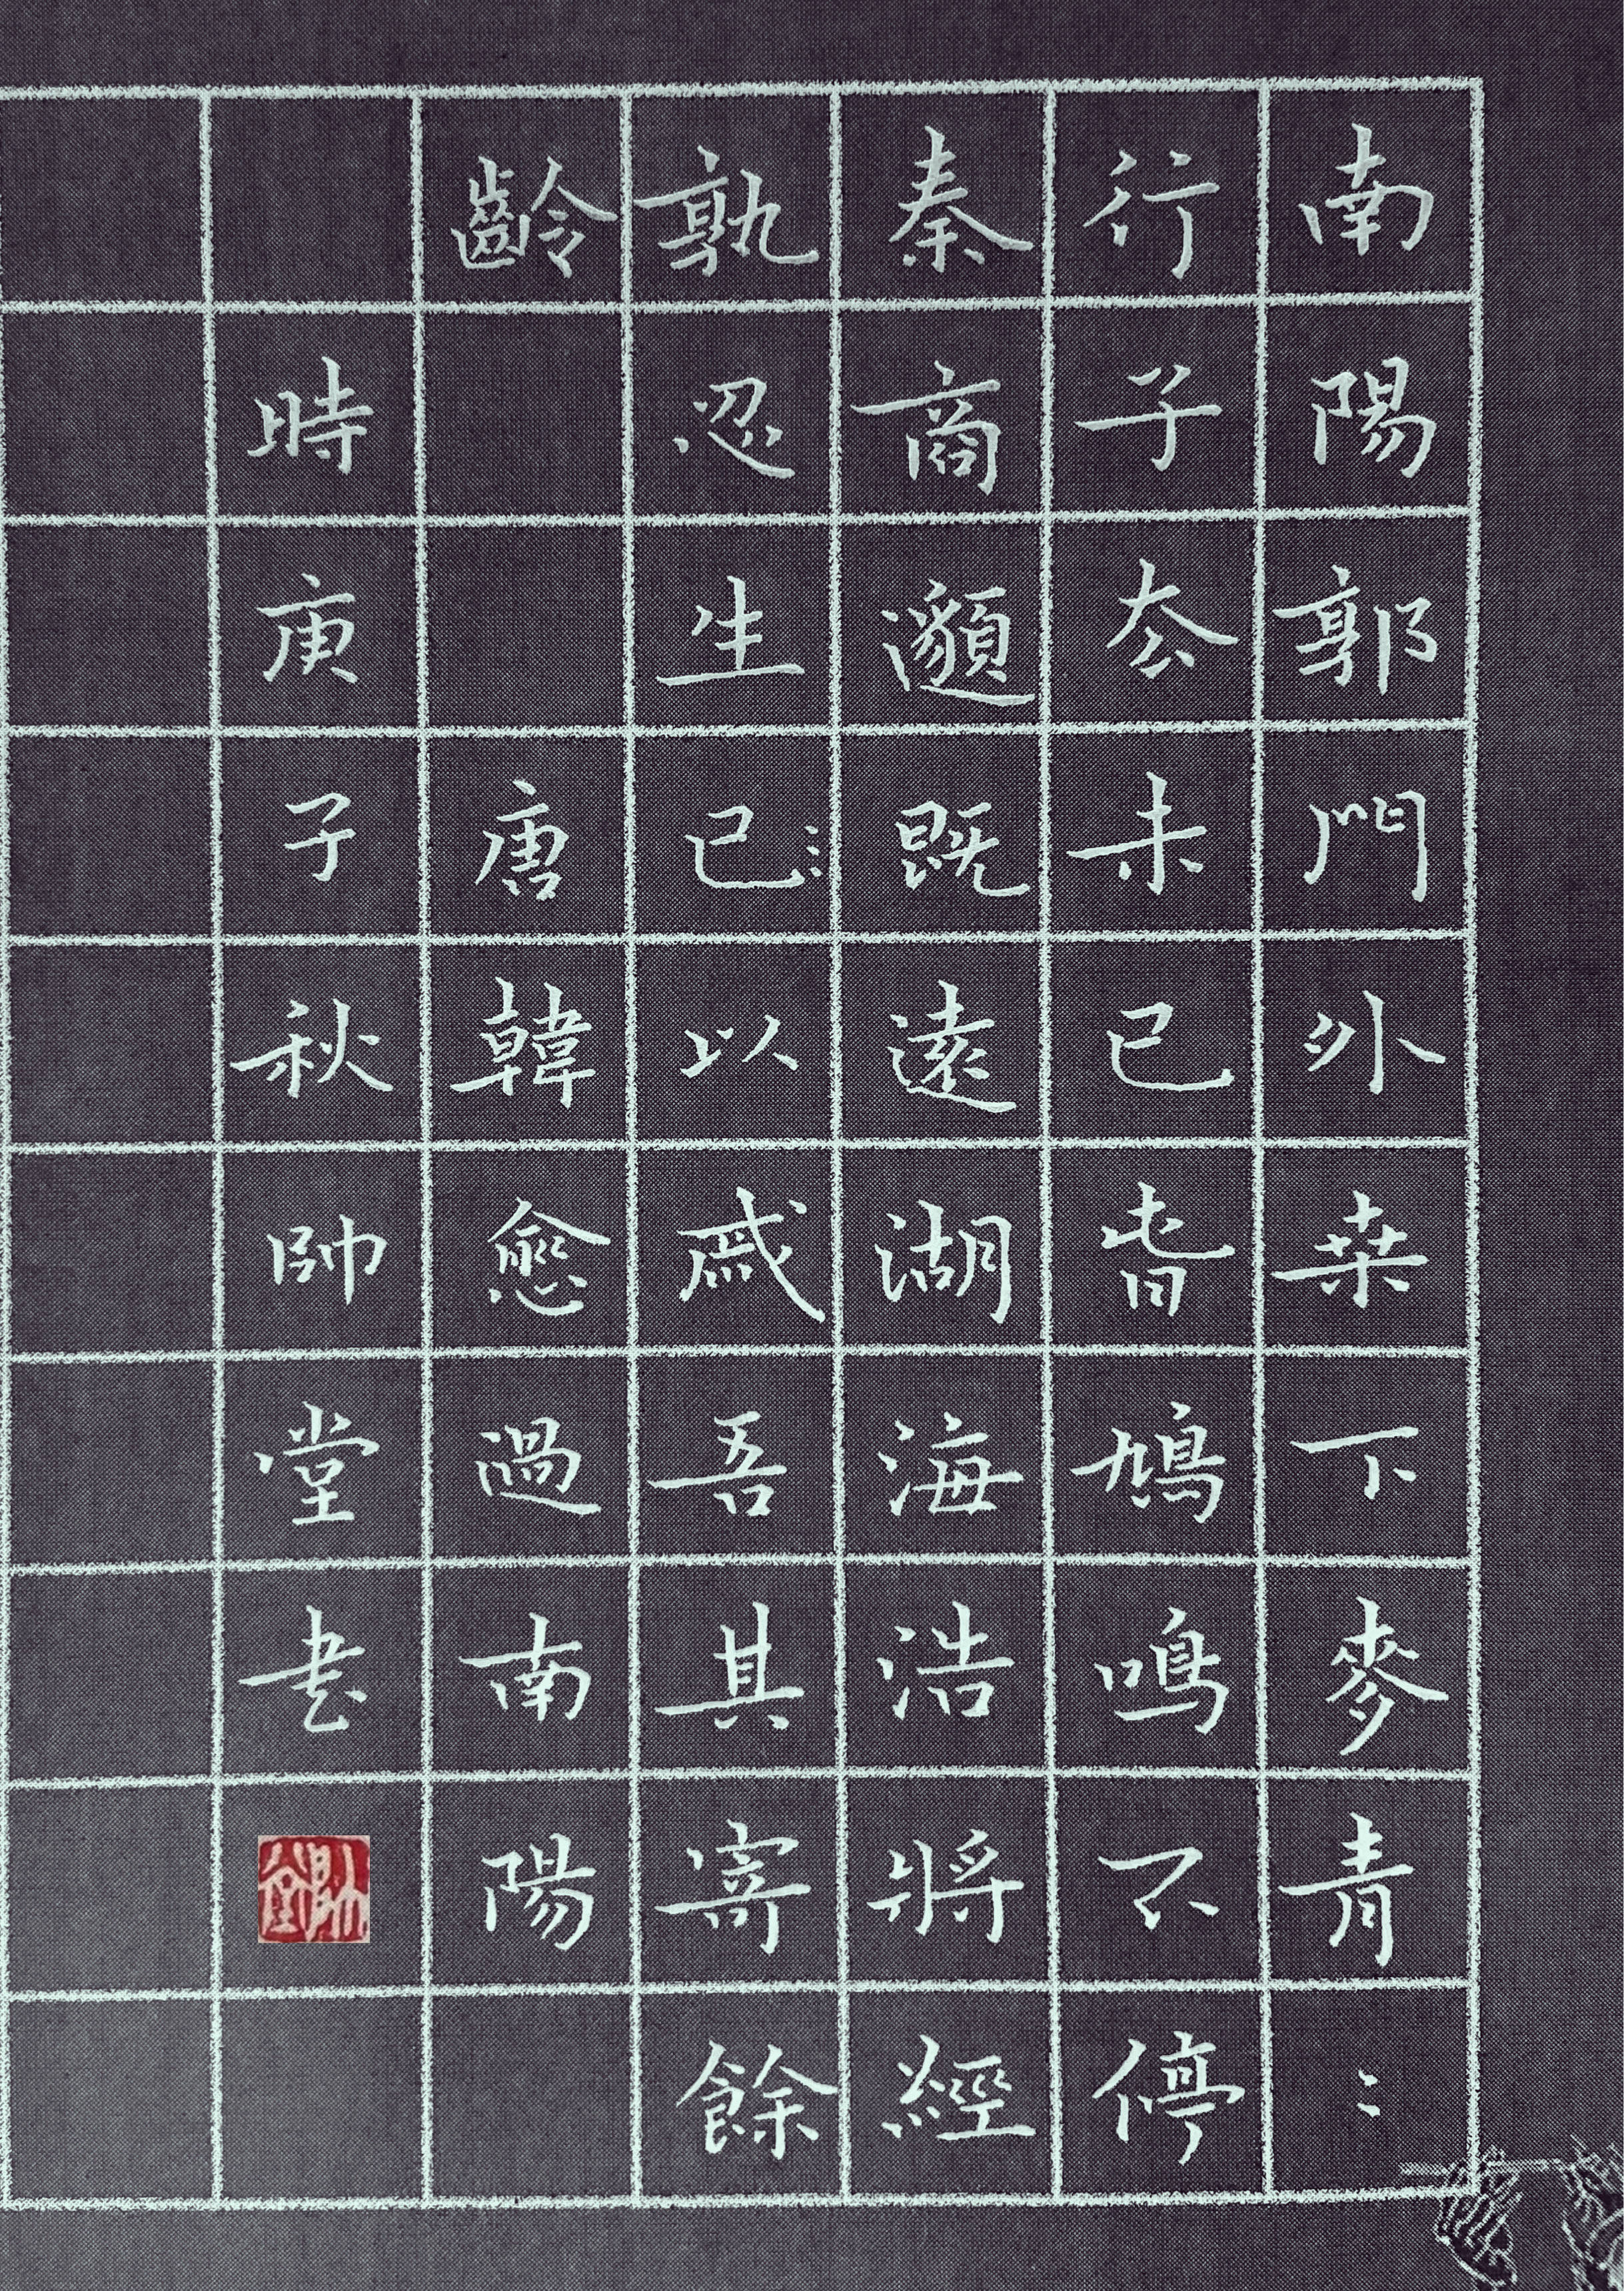 南陽郭門外桒下麥青〻
行子厺未已旾鳩鳴不停
秦商邈既遠湖海浩將經
孰忍生已以戚吾其寄餘
齡　唐韓愈過南陽
時庚子秋帥堂書
帥堂